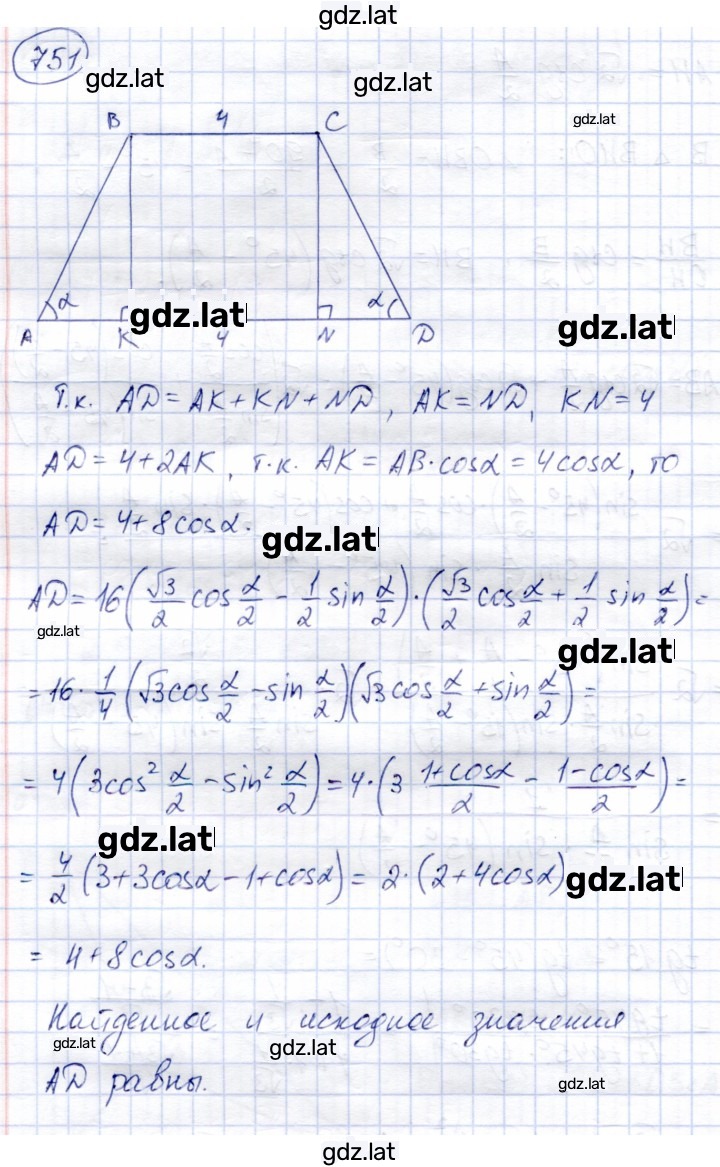 gdz.lat
751
gdz.lat
gdz.lat
gdz.lat
B 4 C
α α
gdz.lat
gdz.lat
A K 4 N D
Т.к. AD = AK + KN + ND, AK = ND, KN = 4
AD = 4 + 2AK, т.к. AK = AB·cosα = 4cosα, то
AD = 4 + 8cosα.
gdz.lat
AD = 16(√3/2 cos α/2 - 1/2 sin α/2)·(√3/2 cos α/2 + 1/2 sin α/2) =
gdz.lat
gdz.lat
= 16·1/4 (√3cos α/2 - sin α/2)(√3cos α/2 + sin α/2) =
= 4(3cos² α/2 - sin² α/2) = 4·(3 (1+cosα)/2 - (1-cosα)/2) =
gdz.lat
= 4/2 (3+3cosα-1+cosα) = 2·(2+4cosα)
gdz.lat
= 4+8cosα.
Найденное и исходное значения
gdz.lat
gdz.lat
AD равны.
gdz.lat
gdz.lat